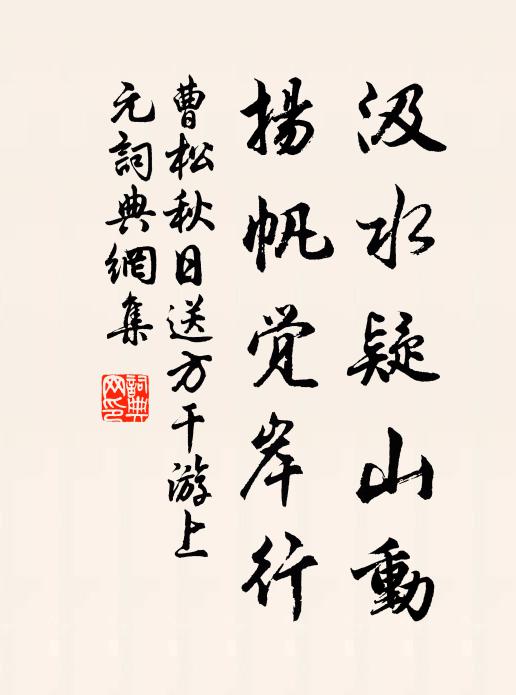 汲水疑山動
揚帆觉岸行
曹松秋日送方干游上
元詞典網集
詞典
网印